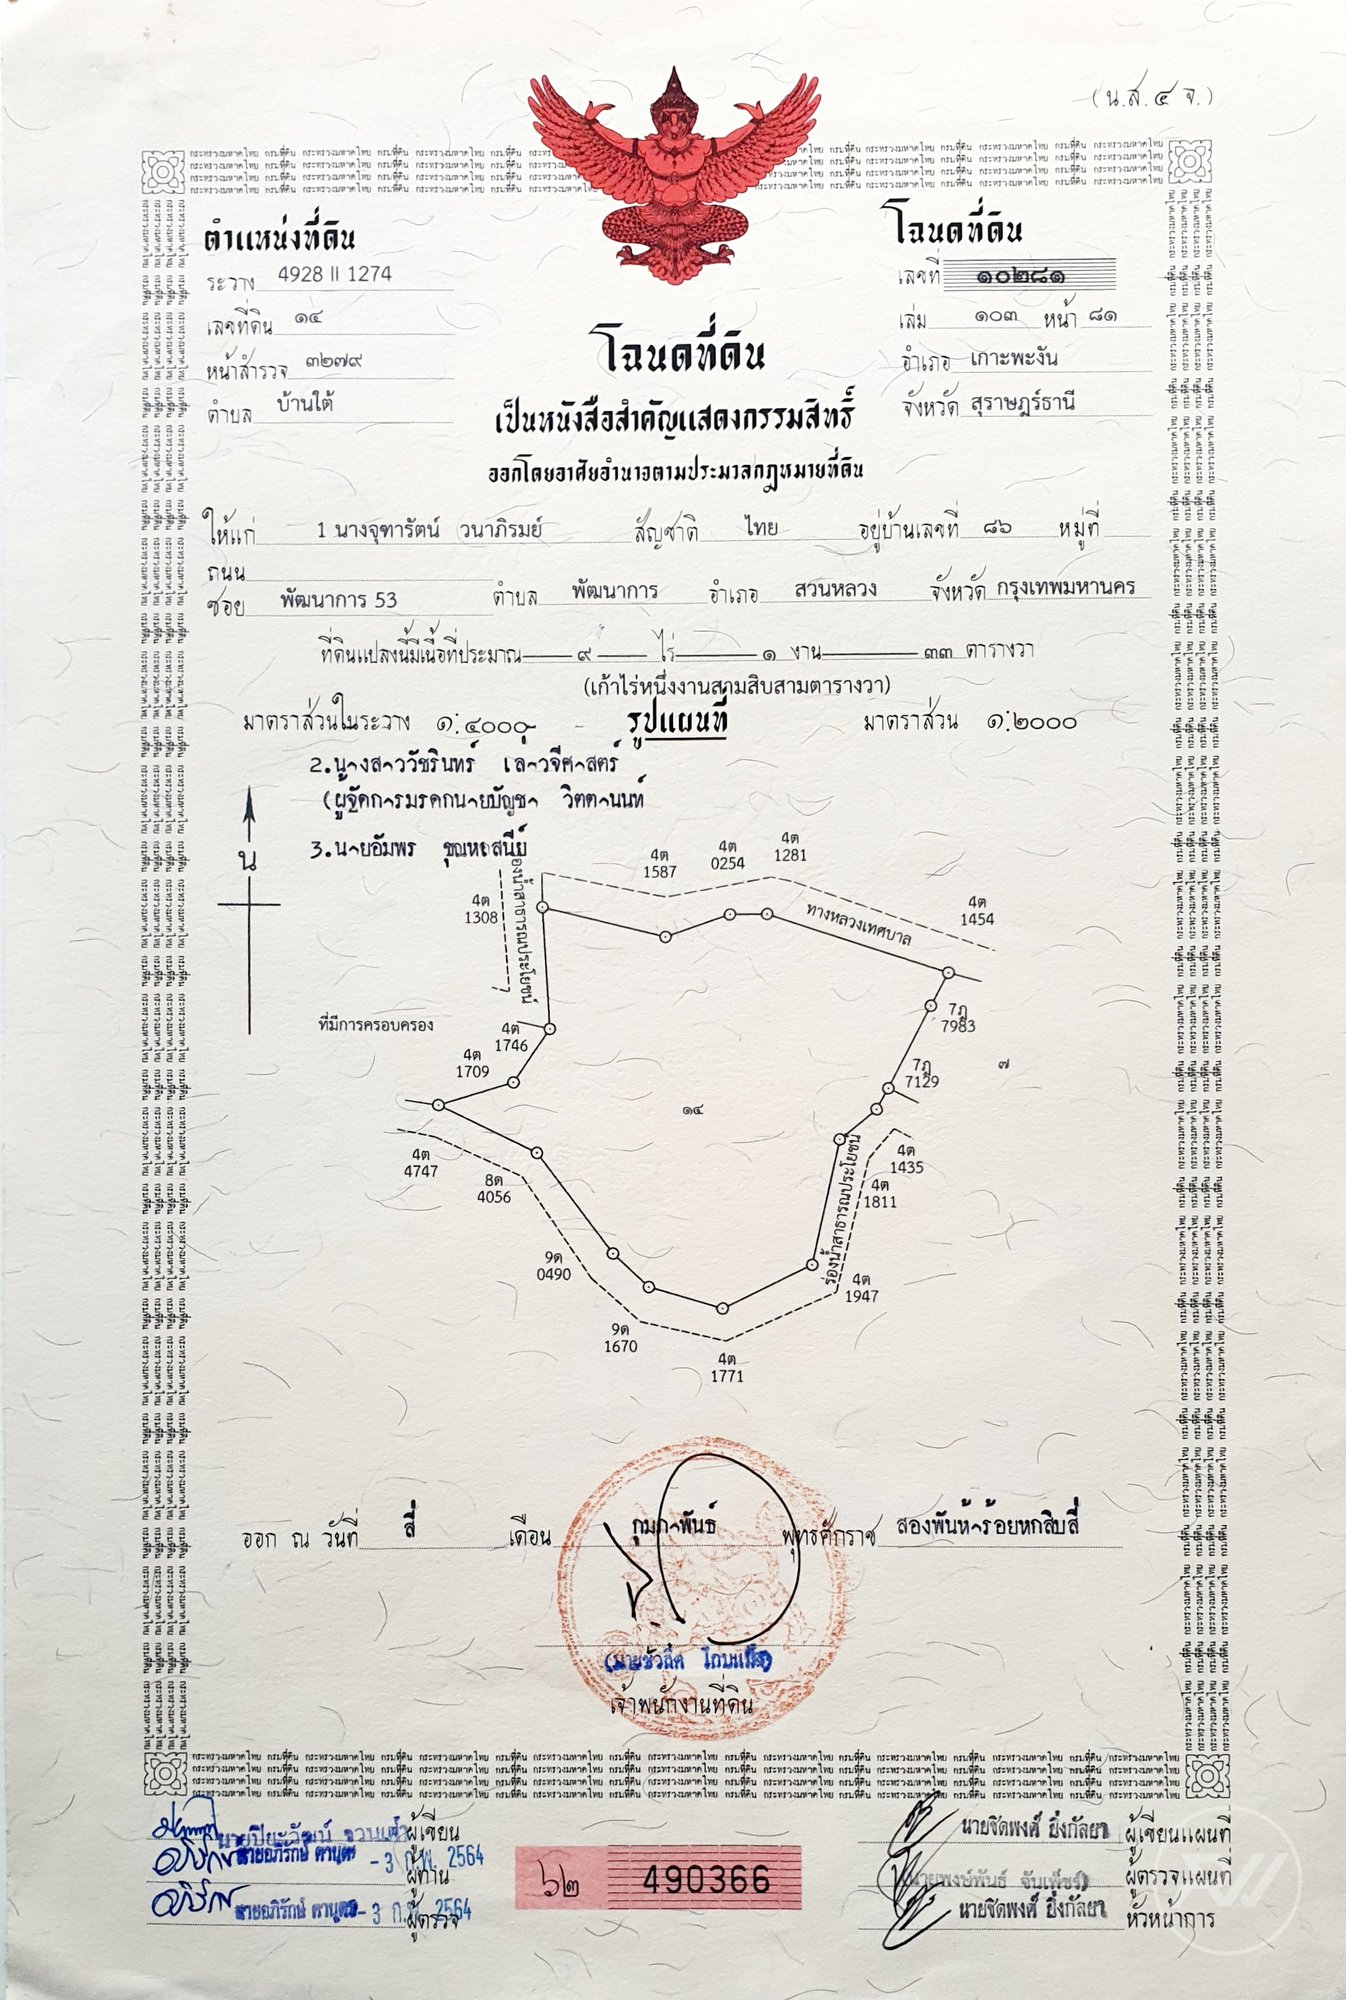 (น.ส.๔ จ.)
ตำแหน่งที่ดิน
ระวาง 4928 II 1274
เลขที่ดิน ๑๔
หน้าสำรวจ ๓๒๗๙
ตำบล บ้านใต้
โฉนดที่ดิน
เลขที่ ๑๐๒๘๑
เล่ม ๑๐๓ หน้า ๘๑
อำเภอ เกาะพะงัน
จังหวัด สุราษฎร์ธานี
โฉนดที่ดิน
เป็นหนังสือสำคัญแสดงกรรมสิทธิ์
ออกโดยอาศัยอำนาจตามประมวลกฎหมายที่ดิน
ให้แก่ 1 นางจุฑารัตน์ วนาภิรมย์ สัญชาติ ไทย อยู่บ้านเลขที่ ๘๖ หมู่ที่
ถนน
ซอย พัฒนาการ 53 ตำบล พัฒนาการ อำเภอ สวนหลวง จังหวัด กรุงเทพมหานคร
ที่ดินแปลงนี้มีเนื้อที่ประมาณ ๙ ไร่ ๑ งาน ๓๓ ตารางวา
(เก้าไร่หนึ่งงานสามสิบสามตารางวา)
มาตราส่วนในระวาง ๑:๔๐๐๐ รูปแผนที่ มาตราส่วน ๑:๒๐๐๐
2.นางสาววัชรินทร์ เลาวจีศาสตร์
(ผู้จัดการมรดกนายบัญชา วิตตานนท์
3.นายอัมพร ชุณหเสนีย์
น
4ต 1308
4ต 1587
4ต 0254
4ต 1281
4ต 1454
ทางหลวงเทศบาล
องน้ำสาธารณประโยชน์
ที่มีการครอบครอง
4ต 1746
4ต 1709
7ฎ 7983
7ฎ 7129
๗
๑๔
4ต 4747
8ด 4056
4ต 1435
4ต 1811
ร่องน้ำสาธารณประโยชน์
9ด 0490
4ต 1947
9ด 1670
4ต 1771
ออก ณ วันที่ สี่ เดือน กุมภาพันธ์ พุทธศักราช สองพันห้าร้อยหกสิบสี่
เจ้าพนักงานที่ดิน
กระทรวงมหาดไทย กรมที่ดิน กระทรวงมหาดไทย กรมที่ดิน
ผู้เขียน
นายอภิรักษ์ -3 ก.พ. 2564
ผู้ทาน
นายอภิรักษ์ -3 ก. 2564
ผู้ตรวจ
๖๒ 490366
นายชิดพงศ์ ยิ่งกัลยา ผู้เขียนแผนที่
(นายพงษ์พันธ์ จันเพ็ชร์) ผู้ตรวจแผนที่
นายชิดพงศ์ ยิ่งกัลยา หัวหน้าการ